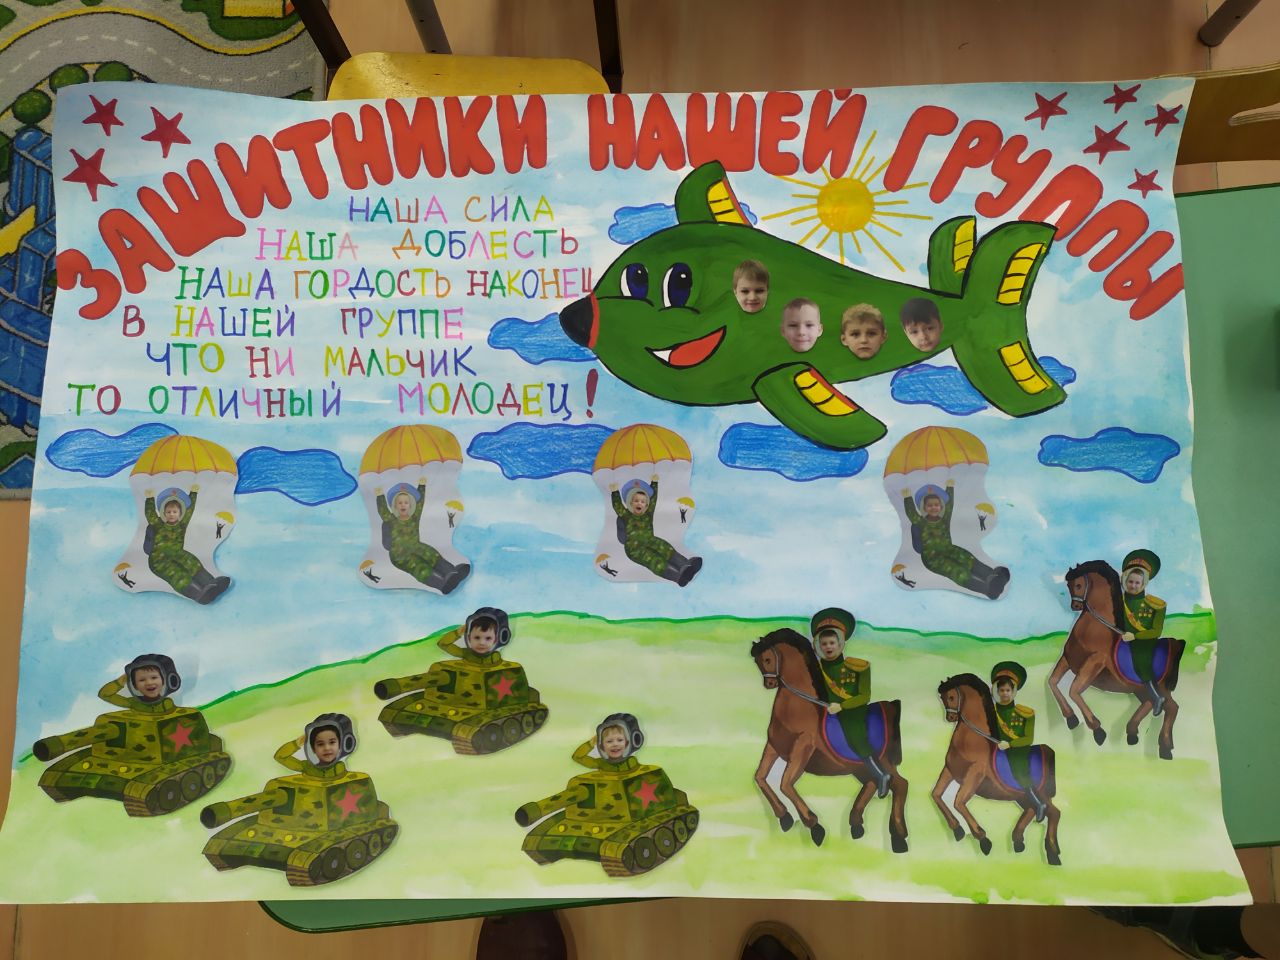 ЗАЩИТНИКИ НАШЕЙ ГРУППЫ
НАША СИЛА
НАША ДОБЛЕСТЬ
НАША ГОРДОСТЬ НАКОНЕЦ
В НАШЕЙ ГРУППЕ
ЧТО НИ МАЛЬЧИК
ТО ОТЛИЧНЫЙ МОЛОДЕЦ!